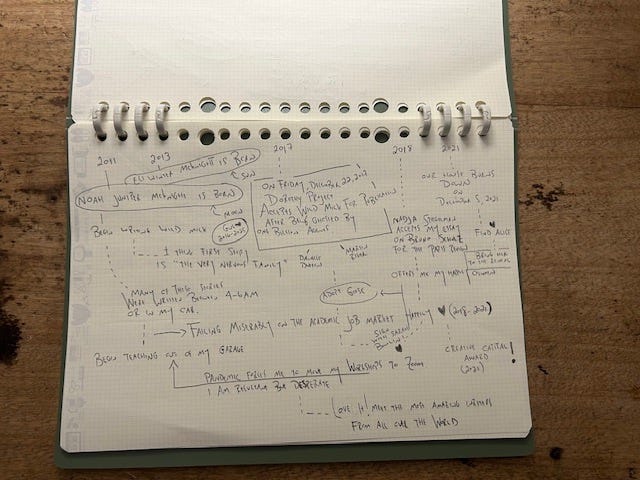 2011
2013
2017
2018
2021
Eli Wright McKnight is Born
Sun
Noah Juniper McKnight is Born
Moon
Begin writing Wild Milk
Gus ♥
2016-2025
I think first story
is "The Very Nervous Family"
Many of these stories
were written between 4-6AM
or in my car.
Failing miserably on the academic job market
Begin teaching out of my garage
Pandemic forces me to move my workshops to Zoom
I am reluctant but desperate
Love it! Meet the most amazing writers
from all over the world
On Friday, December 22, 2017
Dorothy Project
accepts Wild Milk for publication
after being ghosted by
one billion agents
Danielle Dutton
Martin Riker
Adopt Gus
Nadja Spiegelman
accepts my essay
on Bruno Schulz
for the Paris Review
Offers me my
column
Happily ♥ (2018-2021)
Sign with Sarah
♥
Our house burns
down
on
December 5, 2021
Find Alice
Bring her
to the
Creative Capital
Award
(2021)